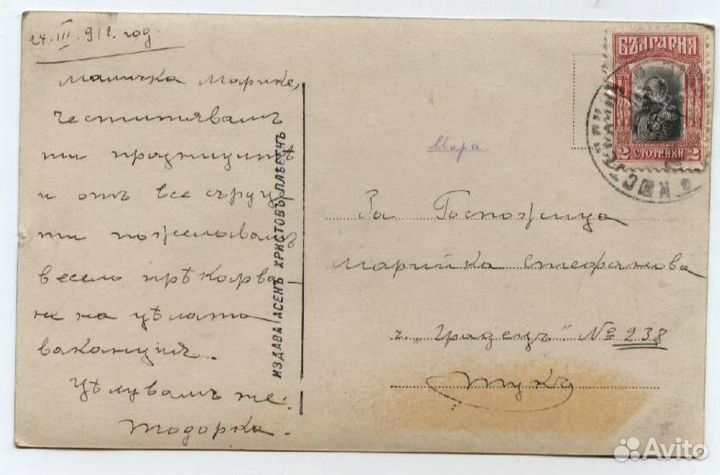 24. III. 912. год
Маличка Марике,
Честитявамъ
ти празницитѣ
и отъ все сърдце
ти пожелавамъ
весело прѣкарва
не на цѣлата
ваканция.
Цѣлувамъ те:
Тодорка.
ИЗДАВА АСЕНЪ ХРИСТОВЪ ПЛѢВЕНЪ
Мара
БЪЛГАРИЯ
2 СТОТИНКИ 2
За Госпожица
Марийка Стефанова
ч. „Градецъ" № 238
Тукъ
Avito